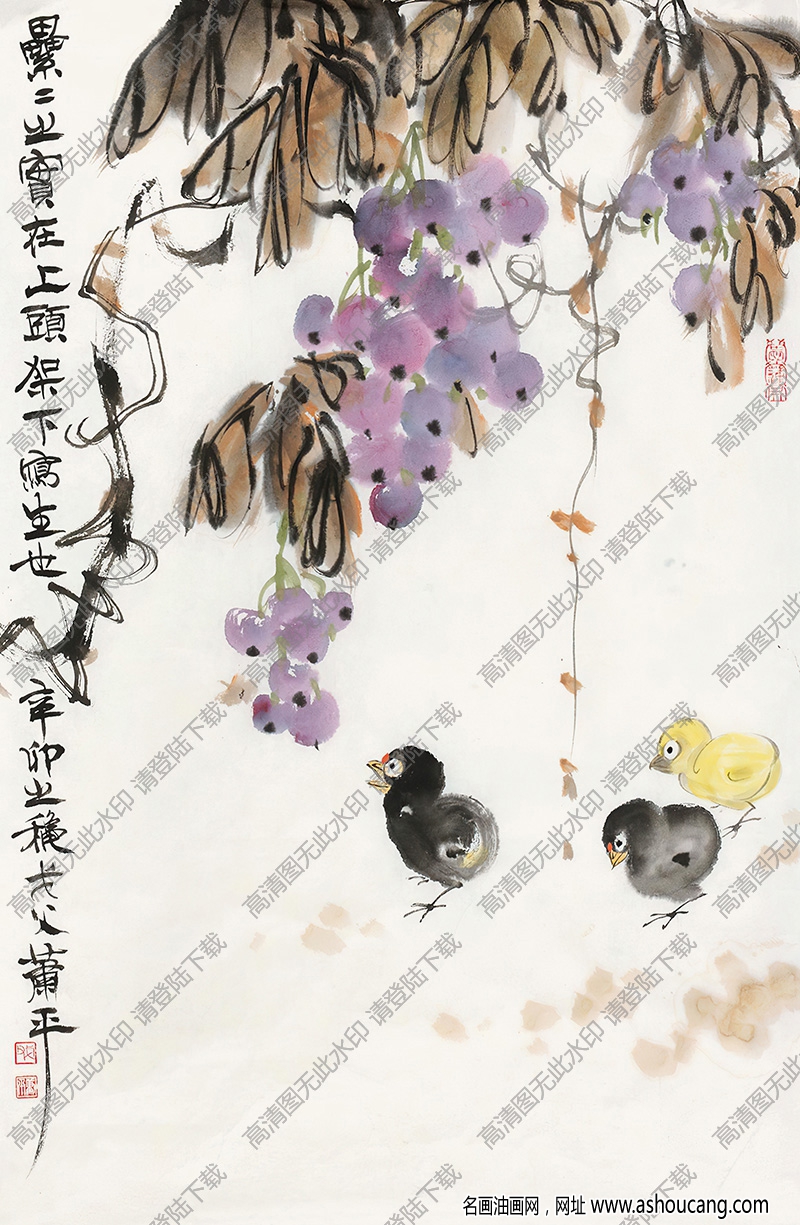 纍〻之實在上頭架下寫生也
辛卯之穐戈父蕭平
高清图无此水印 请登陆下载
名画油画网，网址 www.ashoucang.com